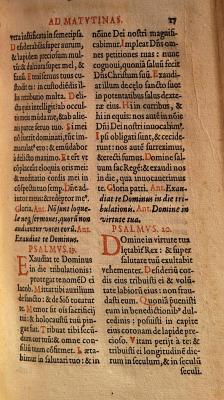 AD MATVTINAS. 27
vera iustificata in semetipsa.
Desiderabilia super aurum,
& lapidem preciosum mul-
tum: & dulciora super mel
& fauum. Etenim seruus tuus
custodit ea: in custodiendis il-
lis retributio multa. De-
licta quis intelligit: ab occul-
tis meis munda me, & ab ali-
enis parce seruo tuo. Si mei
non fuerint dominati, tunc im-
maculatus ero: & emundabor
à delicto maximo. Et erunt vt
complaceant eloquia oris mei:
& meditatio cordis mei in cō-
spectu tuo semper. Domine
adiutor meus: & redemptor me-
us. Gloria. Ant. Nō sunt loque-
læ neq; sermones, quorū non
audiantur voces eorū. Ant.
Exaudiat te Dominus.
PSALMVS. 19.
EXaudiat te Dominus
in die tribulationis:
protegat te nomē Dei
Iacob. Mittat tibi auxilium
de sancto: & de Siō tueatur
te. Memor sit omnis sacrifi-
cij tui: & holocaustum tuum
pingue fiat. Tribuat tibi secū-
dum cor tuū: & omne consi-
lium tuum cōfirmet. Lætabi-
mur in salutari tuo: & in
nōine Dei nostri magnifi-
cabimur. Impleat Dn̄s om-
nes petitiones tuas: nunc
cognoui, quoniā saluū fecit
Dn̄s Christum suū. Exaudi-
et illum de cęlo sancto suo:
in potentatibus salus dexte-
ræ eius. Hi in curribus, &
hi in equis: nos autē in nōīe
Dn̄i Dei nostri inuocabimꝰ.
Ipsi obligati sunt, & cecide-
runt: nos autē surreximus,
& erecti sumus. Domine sal-
uum fac Regē: & exaudi nos
in die, qua inuocauerimus
te. Gloria patri. Ant. Exaudi-
at te Dominus in die tri-
bulationis. Ant. Domine in
virtute tua.
PSALMVS. 20.
DOmine in virtute tua
lętabitꝰ Rex: & super
salutare tuū exultabit
vehementer. Desideriū cor-
dis eius tribuisti ei: & vo-
luntate labiorū eius: non frau-
dasti eum. Quoniā præue-
nisti eum in benedictionibꝰ
dulcedinis: posuisti in capite
eius coronam de lapide pre-
cioso. Vitam petijt à te: &
tribuisti ei longitudinē die-
rum in seculum, & in seculū
seculi.